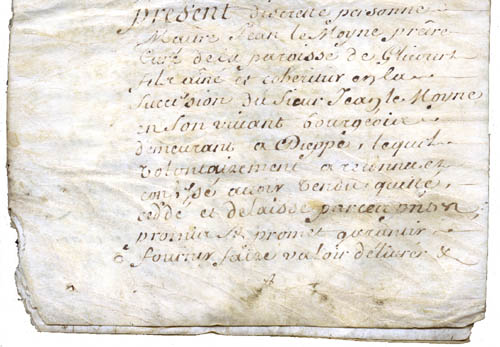 present discrette personne
Maitre Jean le Moyne prêtre
Curé de la paroisse de Glicourt
fils aine et coheritier en la
succession du sieur Jean le Moyne
en son vivant bourgeois
demeurant a Dieppe, lequel
volontairement a reconnu et
confessé avoir vendu quitté,
ceddé et delaissé par ces
promis et promet garantir
fournir faire valoir délivrer &